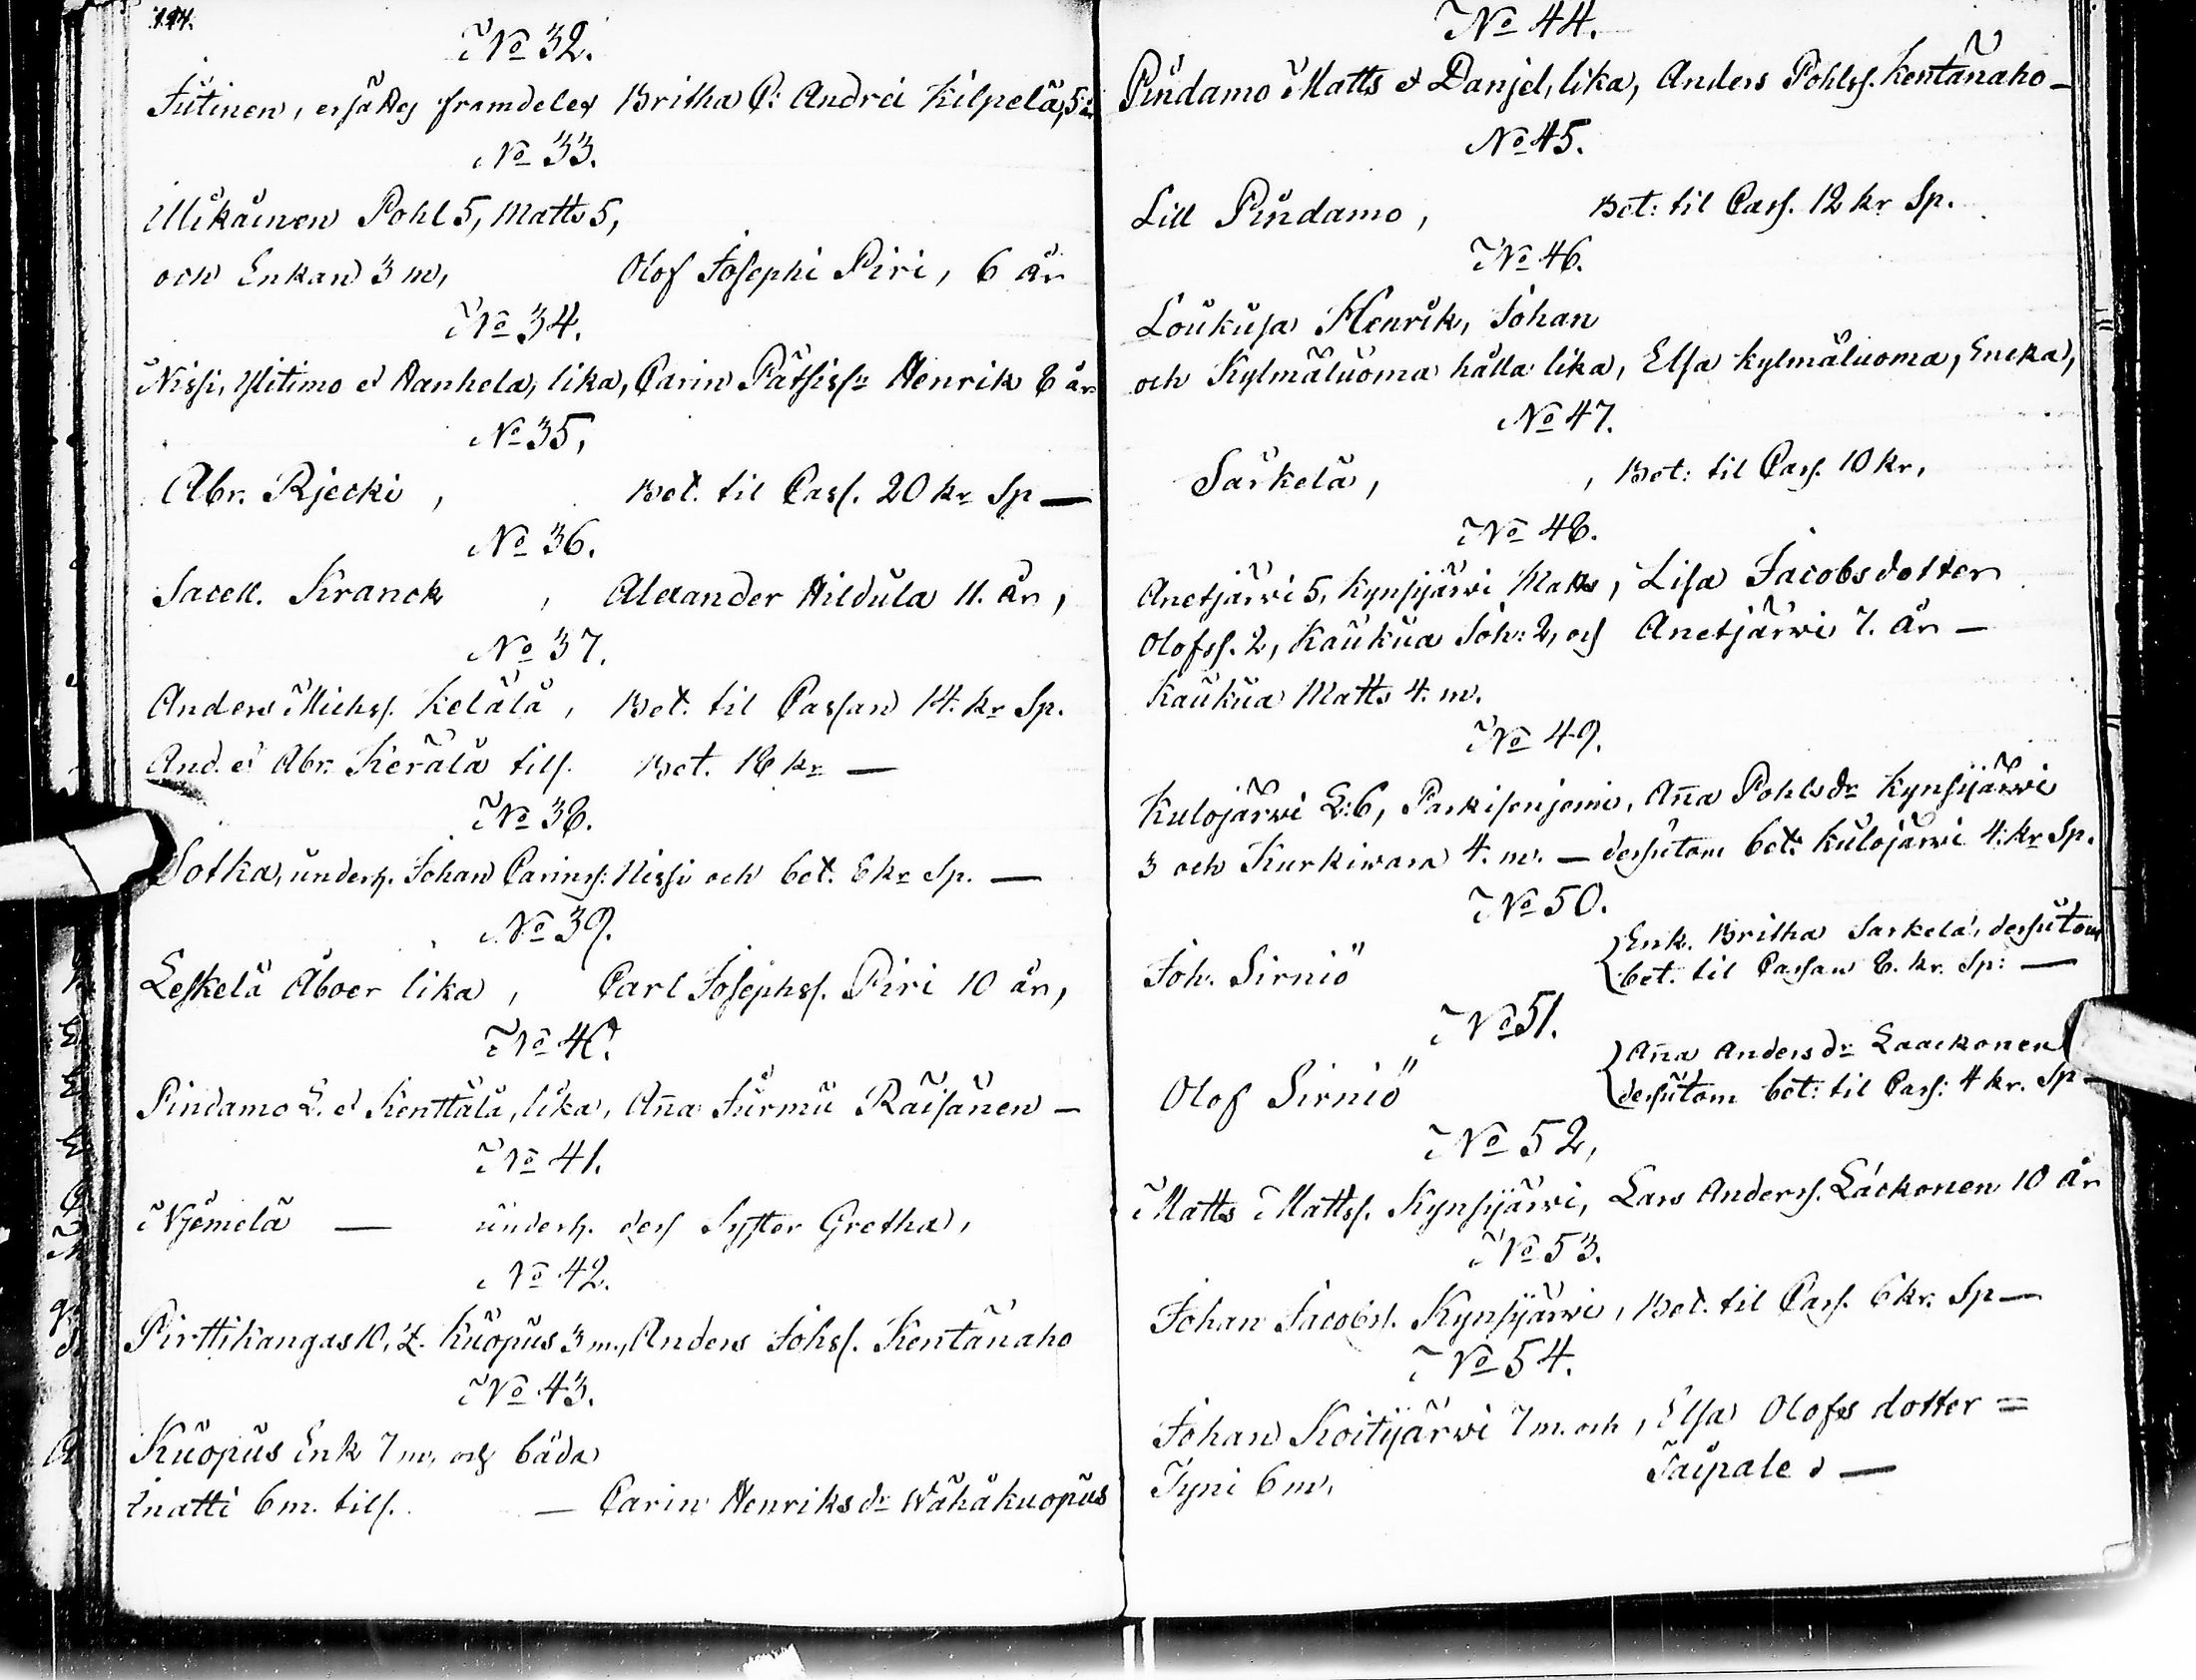 194.
No 32.
Jutinen, ersättes framdeles Britha C: Andrei Kilpelä, 5 år
No 33.
Mikäinen Pohl 5, Matts 5,
och Enkan 3 m, Olof Josephi Piri, 6 år
No 34.
Nissi, Ylitimo et Hanhela, lika, Carin Pätsissr Henrik 8 år
No 35,
Abr. Rjecki, Bet. til Cass. 20 kr Sp —
No 36.
Sacell. Kranck, Alexander Hildula 11. år,
No 37.
Anders Michss. Kelälä, Bet. til Cassan 14. kr Sp.
And. et Abr. Kerälä tils. Bet. 18 kr —
No 38.
Sotka, underh. Johan Carinss: Nissi och bet. 8 kr Sp. —
No 39.
Leskelä Åboer lika, Carl Josephss. Piri 10 år,
No 40.
Pindamo L. et Kenttälä, lika, Aña Jurmu Räisänen —
No 41.
Njemelä — underh. dess Syster Gretha,
No 42.
Pirttikangas 10, L. Kuopus 3 m., Anders Johss. Kentänaho
No 43.
Kuopus Enk 7 m, och båda
Inatti 6 m. tils. — Carin Henriks dr Wähäkuopus
No 44.
Pindamo Matts et Danjel, lika, Anders Pohlss. Kentänaho —
No 45.
Lill Pindamo, Bet: til Cass. 12 kr Sp.
No 46.
Loukusa Henrik, Johan
och Kylmäluoma hålla lika, Elsa Kylmäluoma, Encka,
No 47.
Särkelä, , Bet: til Cass. 10 kr,
No 48.
Anetjärwi 5, Kynsijärwi Matts, Lisa Jacobsdotter
Olofss. 2, Kaukua Joh: 2, och Anetjärwi 7. år —
Kaukua Matts 4. m.
No 49.
Kulojärwi L: 6, Paskisenjemi, Aña Pohls dr Kynsijärwi
3 och Kurkiwara 4. m. — dessutom bet: Kulojärwi 4: kr Sp.
No 50.
Joh. Sirniö {Enk. Britha Sarkela, dessutom
bet. til Cassan 8. kr. Sp: —
No 51.
Olof Sirniö {Aña Anders dr Laackonen
dessutom bet: til Cass: 4 kr. Sp —
No 52,
Matts Mattss. Kynsijärwi, Lars Anderss. Läckonen 10 år
No 53.
Johan Jacobss. Kynsijärwi, Bet. til Cass. 6 kr. Sp —
No 54.
Johan Koitijärwi 7 m. och, Elsa Olofss dotter =
Tyni 6 m, Taipale —